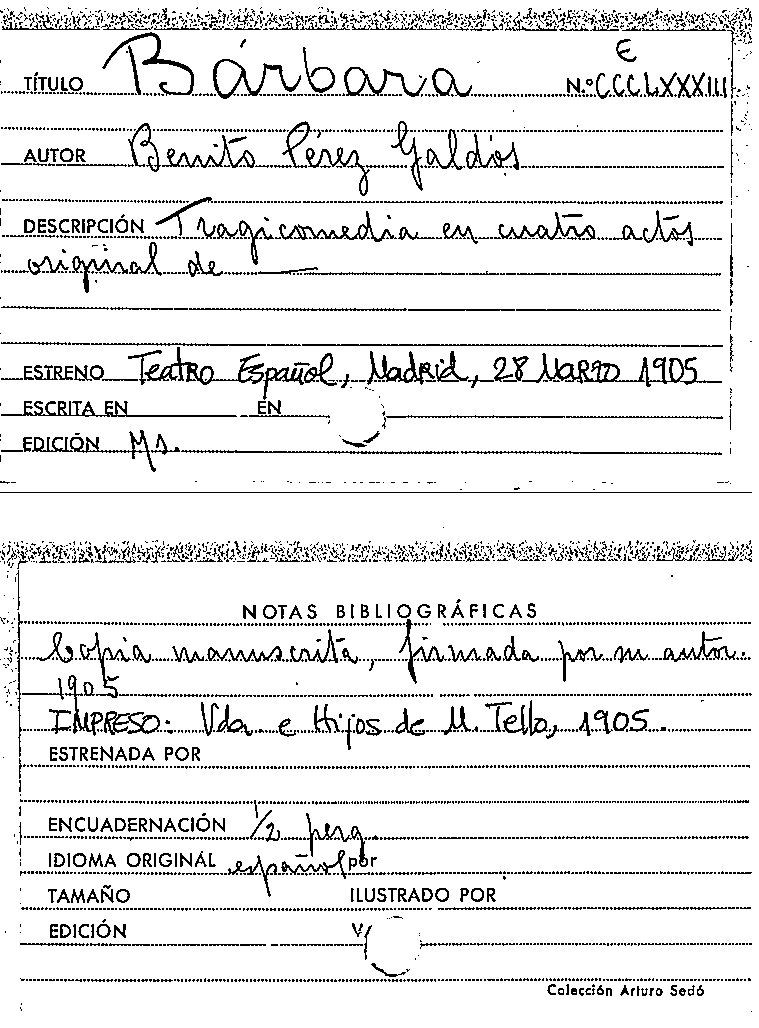 E
TÍTULO Bárbara N.º CCCLXXXIII
AUTOR Benito Pérez Galdós
DESCRIPCIÓN Tragicomedia en cuatro actos
original de ——
ESTRENO Teatro Español, Madrid, 28 Marzo 1905
ESCRITA EN EN
EDICIÓN Ms.
NOTAS BIBLIOGRÁFICAS
Copia manuscrita, firmada por su autor.
1905
IMPRESO: Vda. e Hijos de M. Tello, 1905.
ESTRENADA POR
ENCUADERNACIÓN 1/2 perg.
IDIOMA ORIGINAL español por
TAMAÑO ILUSTRADO POR
EDICIÓN
Colección Arturo Sedó